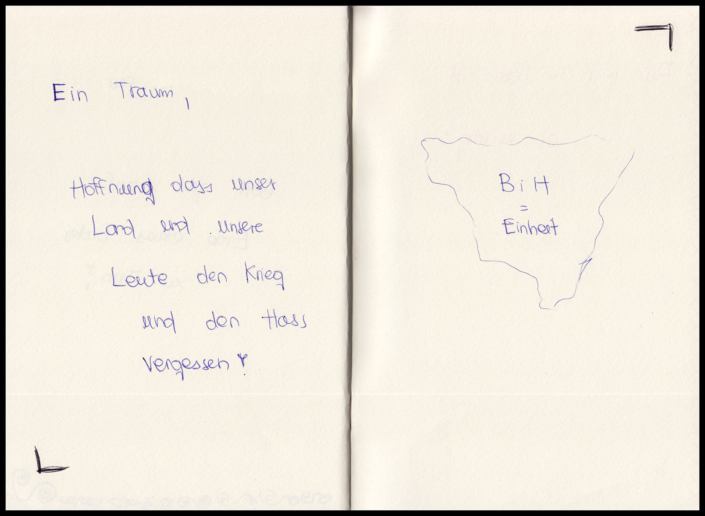 Ein Traum,
Hoffnung dass unser
Land und unsere
Leute den Krieg
und den Hass
vergessen!
BiH
=
Einheit